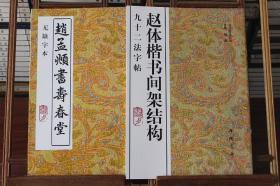 趙孟頫書壽春堂
无缺字本
赵体楷书间架结构
九十二法字帖